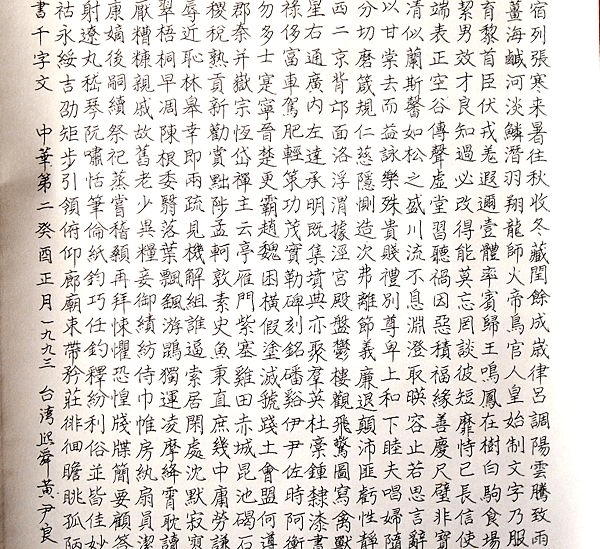 宿列張寒来暑往秋收冬藏閏餘成歲律呂調陽雲騰致雨
薑海鹹河淡鱗潛羽翔龍師火帝鳥官人皇始制文字乃服
育黎首臣伏戎羌遐邇壹體率賓歸王鳴鳳在樹白駒食場
絜男效才良知過必改得能莫忘罔談彼短靡恃己長信使
端表正空谷傳聲虛堂習聽禍因惡積福緣善慶尺璧非寶
清似蘭斯馨如松之盛川流不息淵澄取暎容止若思言辭
以甘棠去而益詠樂殊貴賤禮別尊卑上和下睦夫唱婦隨
分切磨箴規仁慈隱惻造次弗離節義廉退顛沛匪虧性靜
西二京背邙面洛浮渭據涇宮殿盤鬱樓觀飛驚圖寫禽獸
星右通廣內左達承明既集墳典亦聚羣英杜稾鍾隸漆書
祿侈富車駕肥輕策功茂實勒碑刻銘磻谿伊尹佐時阿衡
勿多士寔寧晉楚更霸趙魏困橫假塗滅虢踐土會盟何遵
郡秦并嶽宗恆岱禪主云亭雁門紫塞雞田赤城昆池碣石
稷稅熟貢新勸賞黜陟孟軻敦素史魚秉直庶幾中庸勞謙
辱近恥林皋幸即兩疏見機解組誰逼索居閑處沈默寂寥
翠梧桐早凋陳根委翳落葉飄颻游鵾獨運凌摩絳霄耽讀
厭糟糠親戚故舊老少異糧妾御績紡侍巾帷房紈扇員潔
康嫡後嗣續祭祀蒸嘗稽顙再拜悚懼恐惶牋牒簡要顧答
射遼丸嵇琴阮嘯恬筆倫紙鈞巧任釣釋紛利俗並皆佳妙
祜永綏吉劭矩步引領俯仰廊廟束帶矜莊徘徊瞻眺孤陋
書千字文 中華第二癸酉正月一九九三 台湾熙舜黃尹良